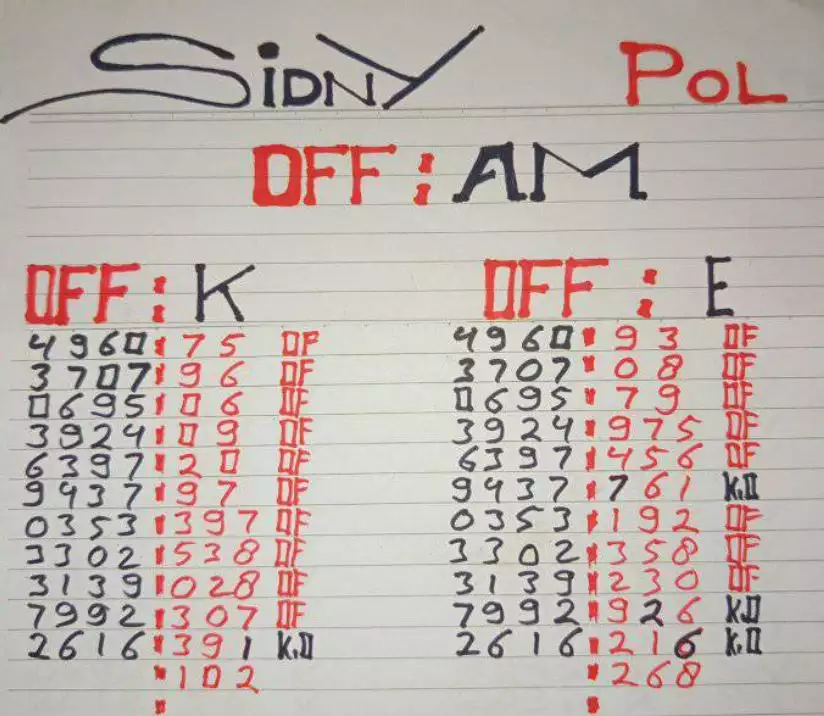 SiDNY POL
OFF : AM
OFF : K OFF : E
4960 : 75 OF 4960 : 93 OF
3707 : 96 OF 3707 : 08 OF
0695 : 06 OF 0695 : 79 OF
3924 : 09 OF 3924 : 975 OF
6397 : 20 OF 6397 : 456 OF
9437 : 97 OF 9437 : 761 K.O
0353 : 397 OF 0353 : 192 OF
3302 : 538 OF 3302 : 358 OF
3139 : 028 OF 3139 : 230 OF
7992 : 307 OF 7992 : 926 K.O
2616 : 391 K.O 2616 : 216 K.O
: 102 : 268